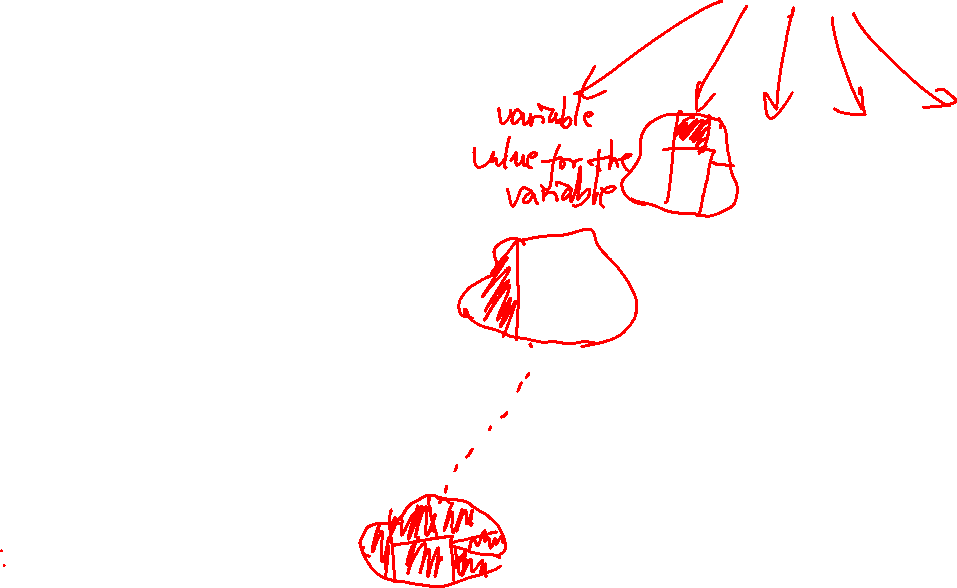 variable
value for the
variable